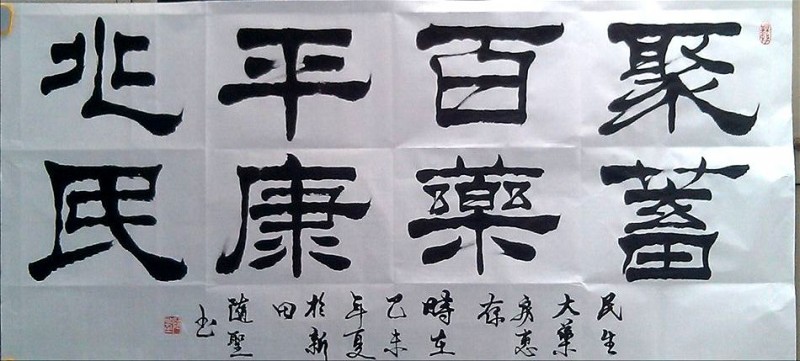 聚蓄
百藥
平康
兆民
民生
大藥
房惠
存
時在
乙未
年夏
於新
田
隨聖
书